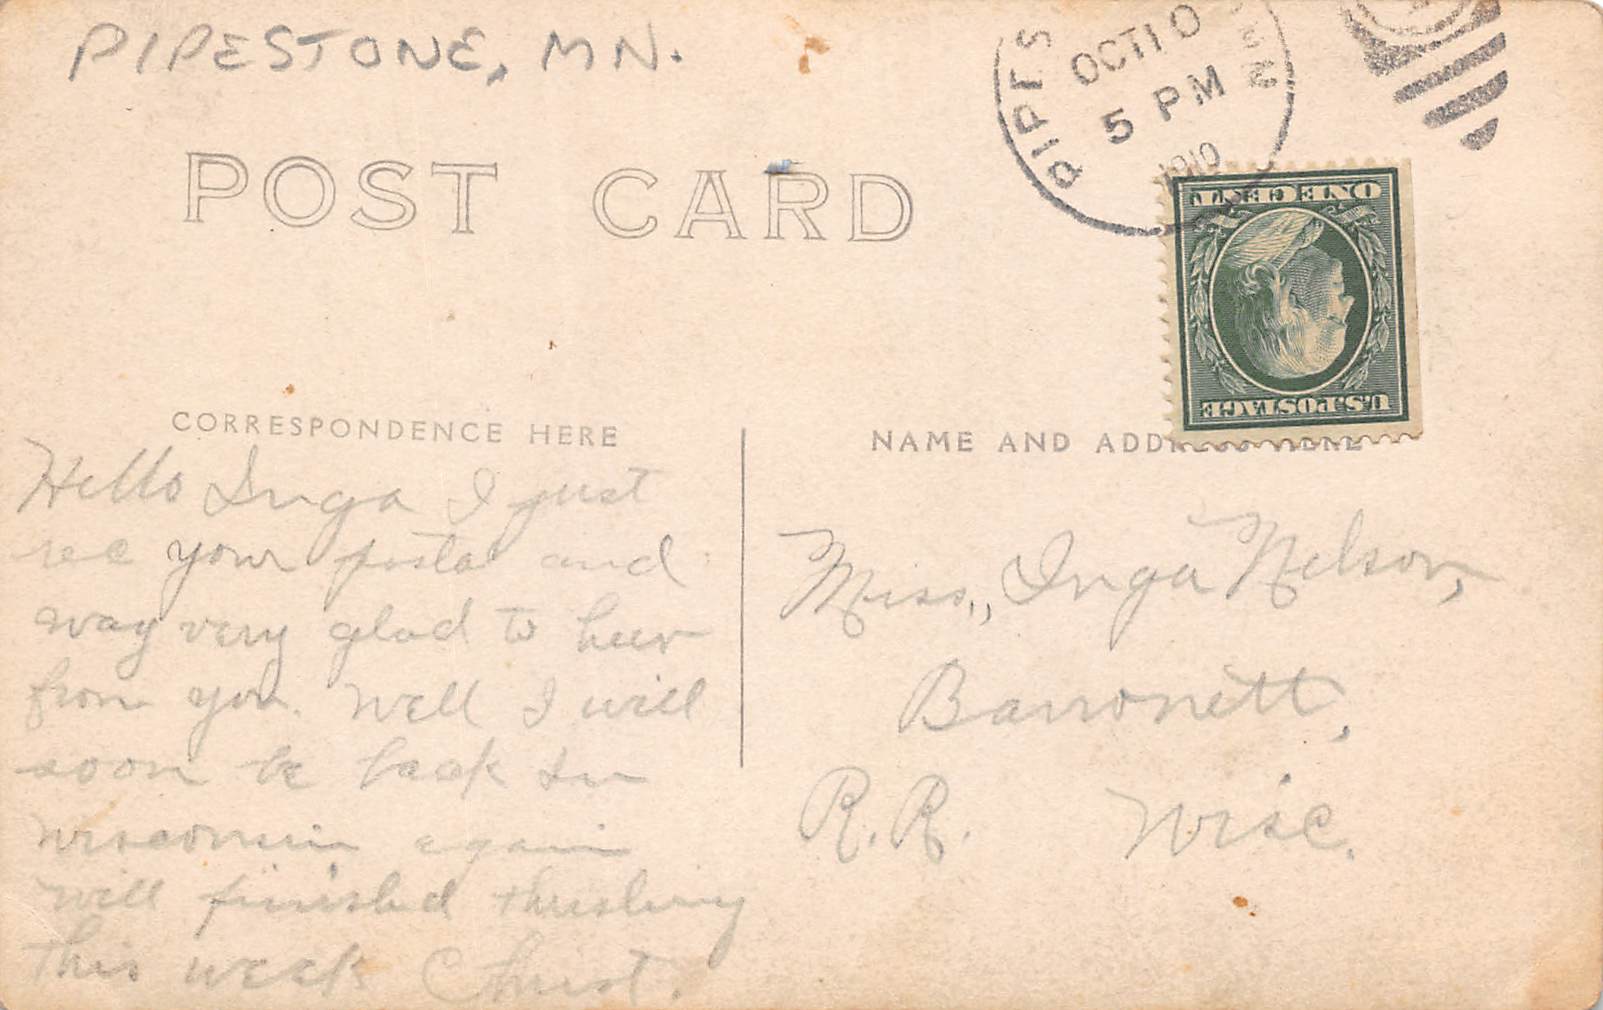 PIPESTONE, MN.
PIPES MINN
OCT 10
5 PM
1910
POST CARD
ONE CENT
U.S. POSTAGE
CORRESPONDENCE HERE
NAME AND ADDRESS HERE
Hello Inga I just
rec your postal and
way very glad to heer
from you. Well I will
soon be back in
Wisconsin again
will finished thrishing
this week Christ.
Miss., Inga Nelson,
Barronett,
R.R. Wisc.